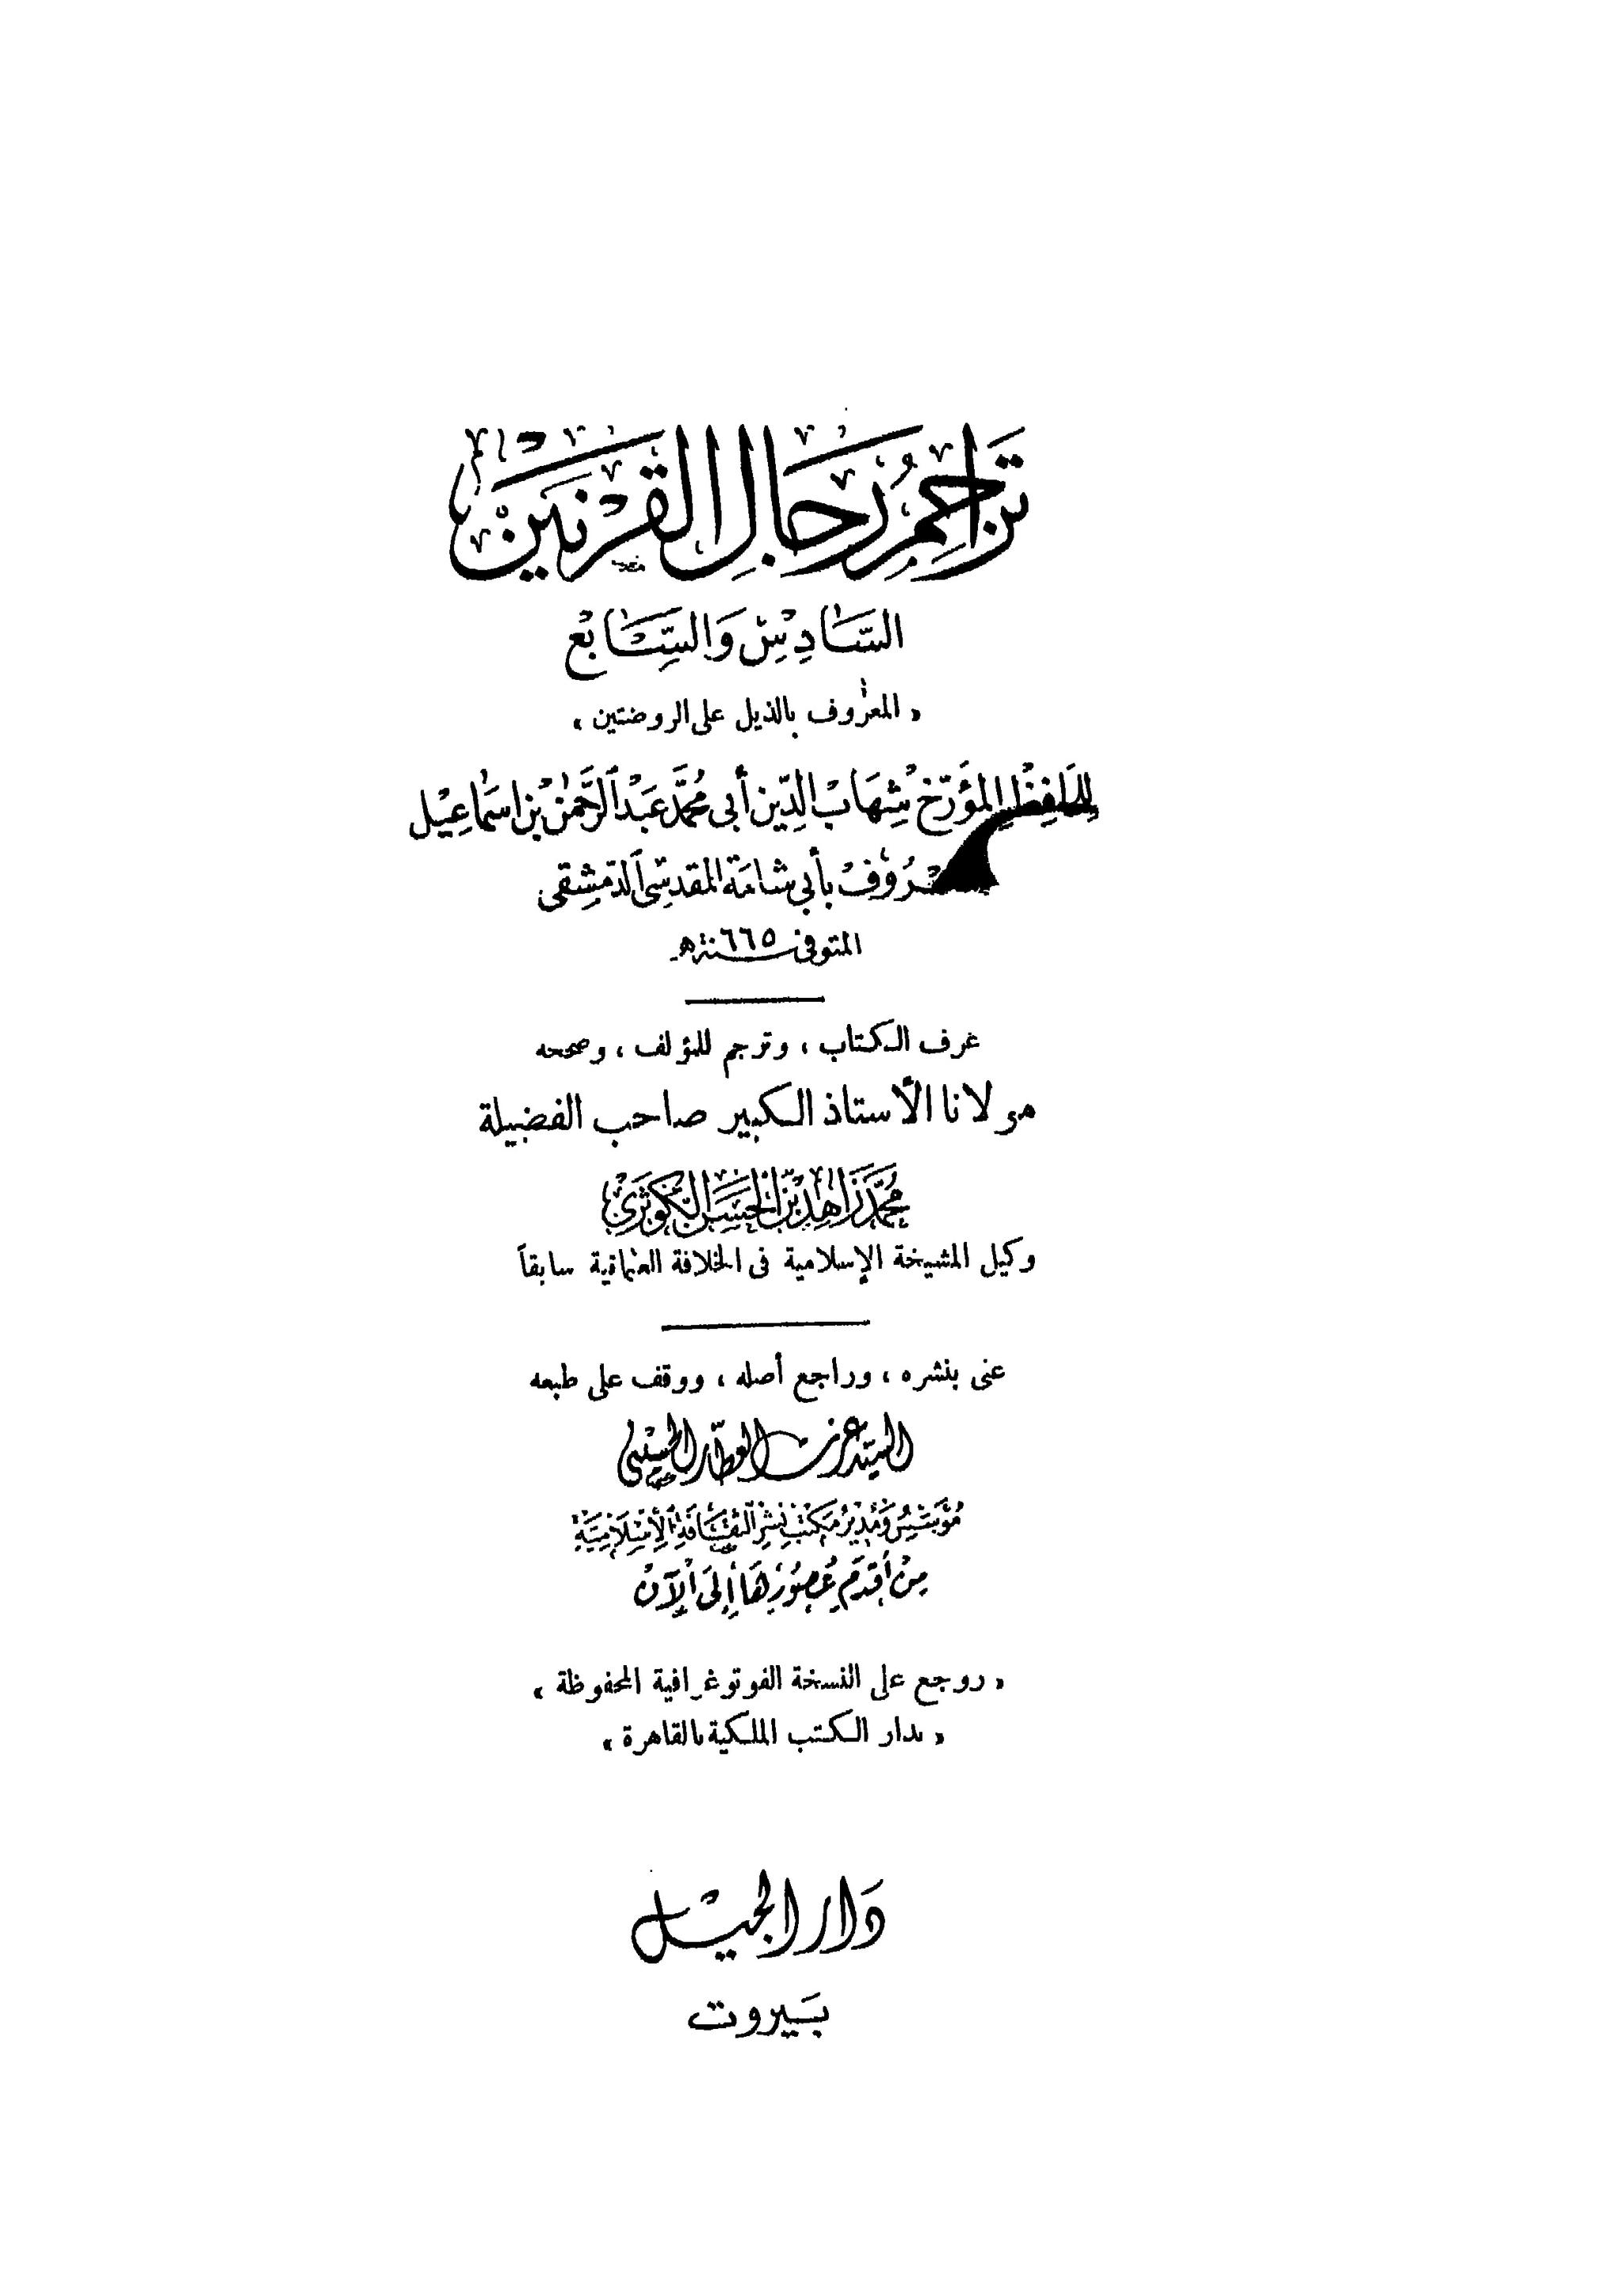 تَرَاجِمُ رِجَالِ القَرْنَيْن
السَّادِسْ وَالسَّابْع
« المعرُوف بالذيل على الروضتين »
لِلحَافِظِ المؤرّخ شِهَابْ الدِّين أبي مُحمَّد عَبْد الرَّحمٰن بْن اسمَاعِيْل
بأبي شامَة المقدسِّى الدّمشِقى
المتوفى سنة ٦٦٥ هـ
عرف الكتاب ، وترجم للمؤلف ، وصححه
مولانا الأستاذ الكبير صاحب الفضيلة
محمَّد زَاهِد بْن الحَسَن الكَوْثَرِىّ
وكيل المشيخة الإسلامية فى الخلافة العثمانية سابقاً
عنى بنشره ، وراجع أصله ، ووقف على طبعه
السيّد عزت العطّار الحسيْنى
مُؤسّسُ وَمُدِيْر مَكتب نشْرِ الثقَافَةِ الإِسْلَامِيَّةِ
مِنْ أَقْدَمِ عُصُوْرِهَا إِلَى الآنْ
« روجع على النسخة الفوتوغرافية المحفوظة »
« بدار الكتب الملكية بالقاهرة »
دَار الجيْل
بَيروت